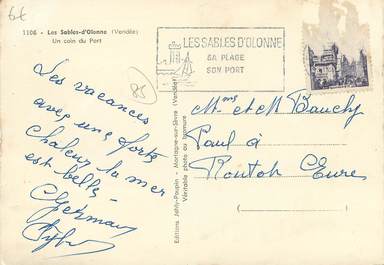 6€
1106 - Les Sables-d'Olonne (Vendée)
Un coin du Port
LES SABLES D'OLONNE
SA PLAGE
SON PORT
85
Les vacances
avec une forte
Chaleur la mer
est belle
Germay
Editions Jehly-Poupin - Mortagne-sur-Sèvre (Vendée)
Véritable photo au bromure
Mme et M Bauchy
Paul à
Routot Eure